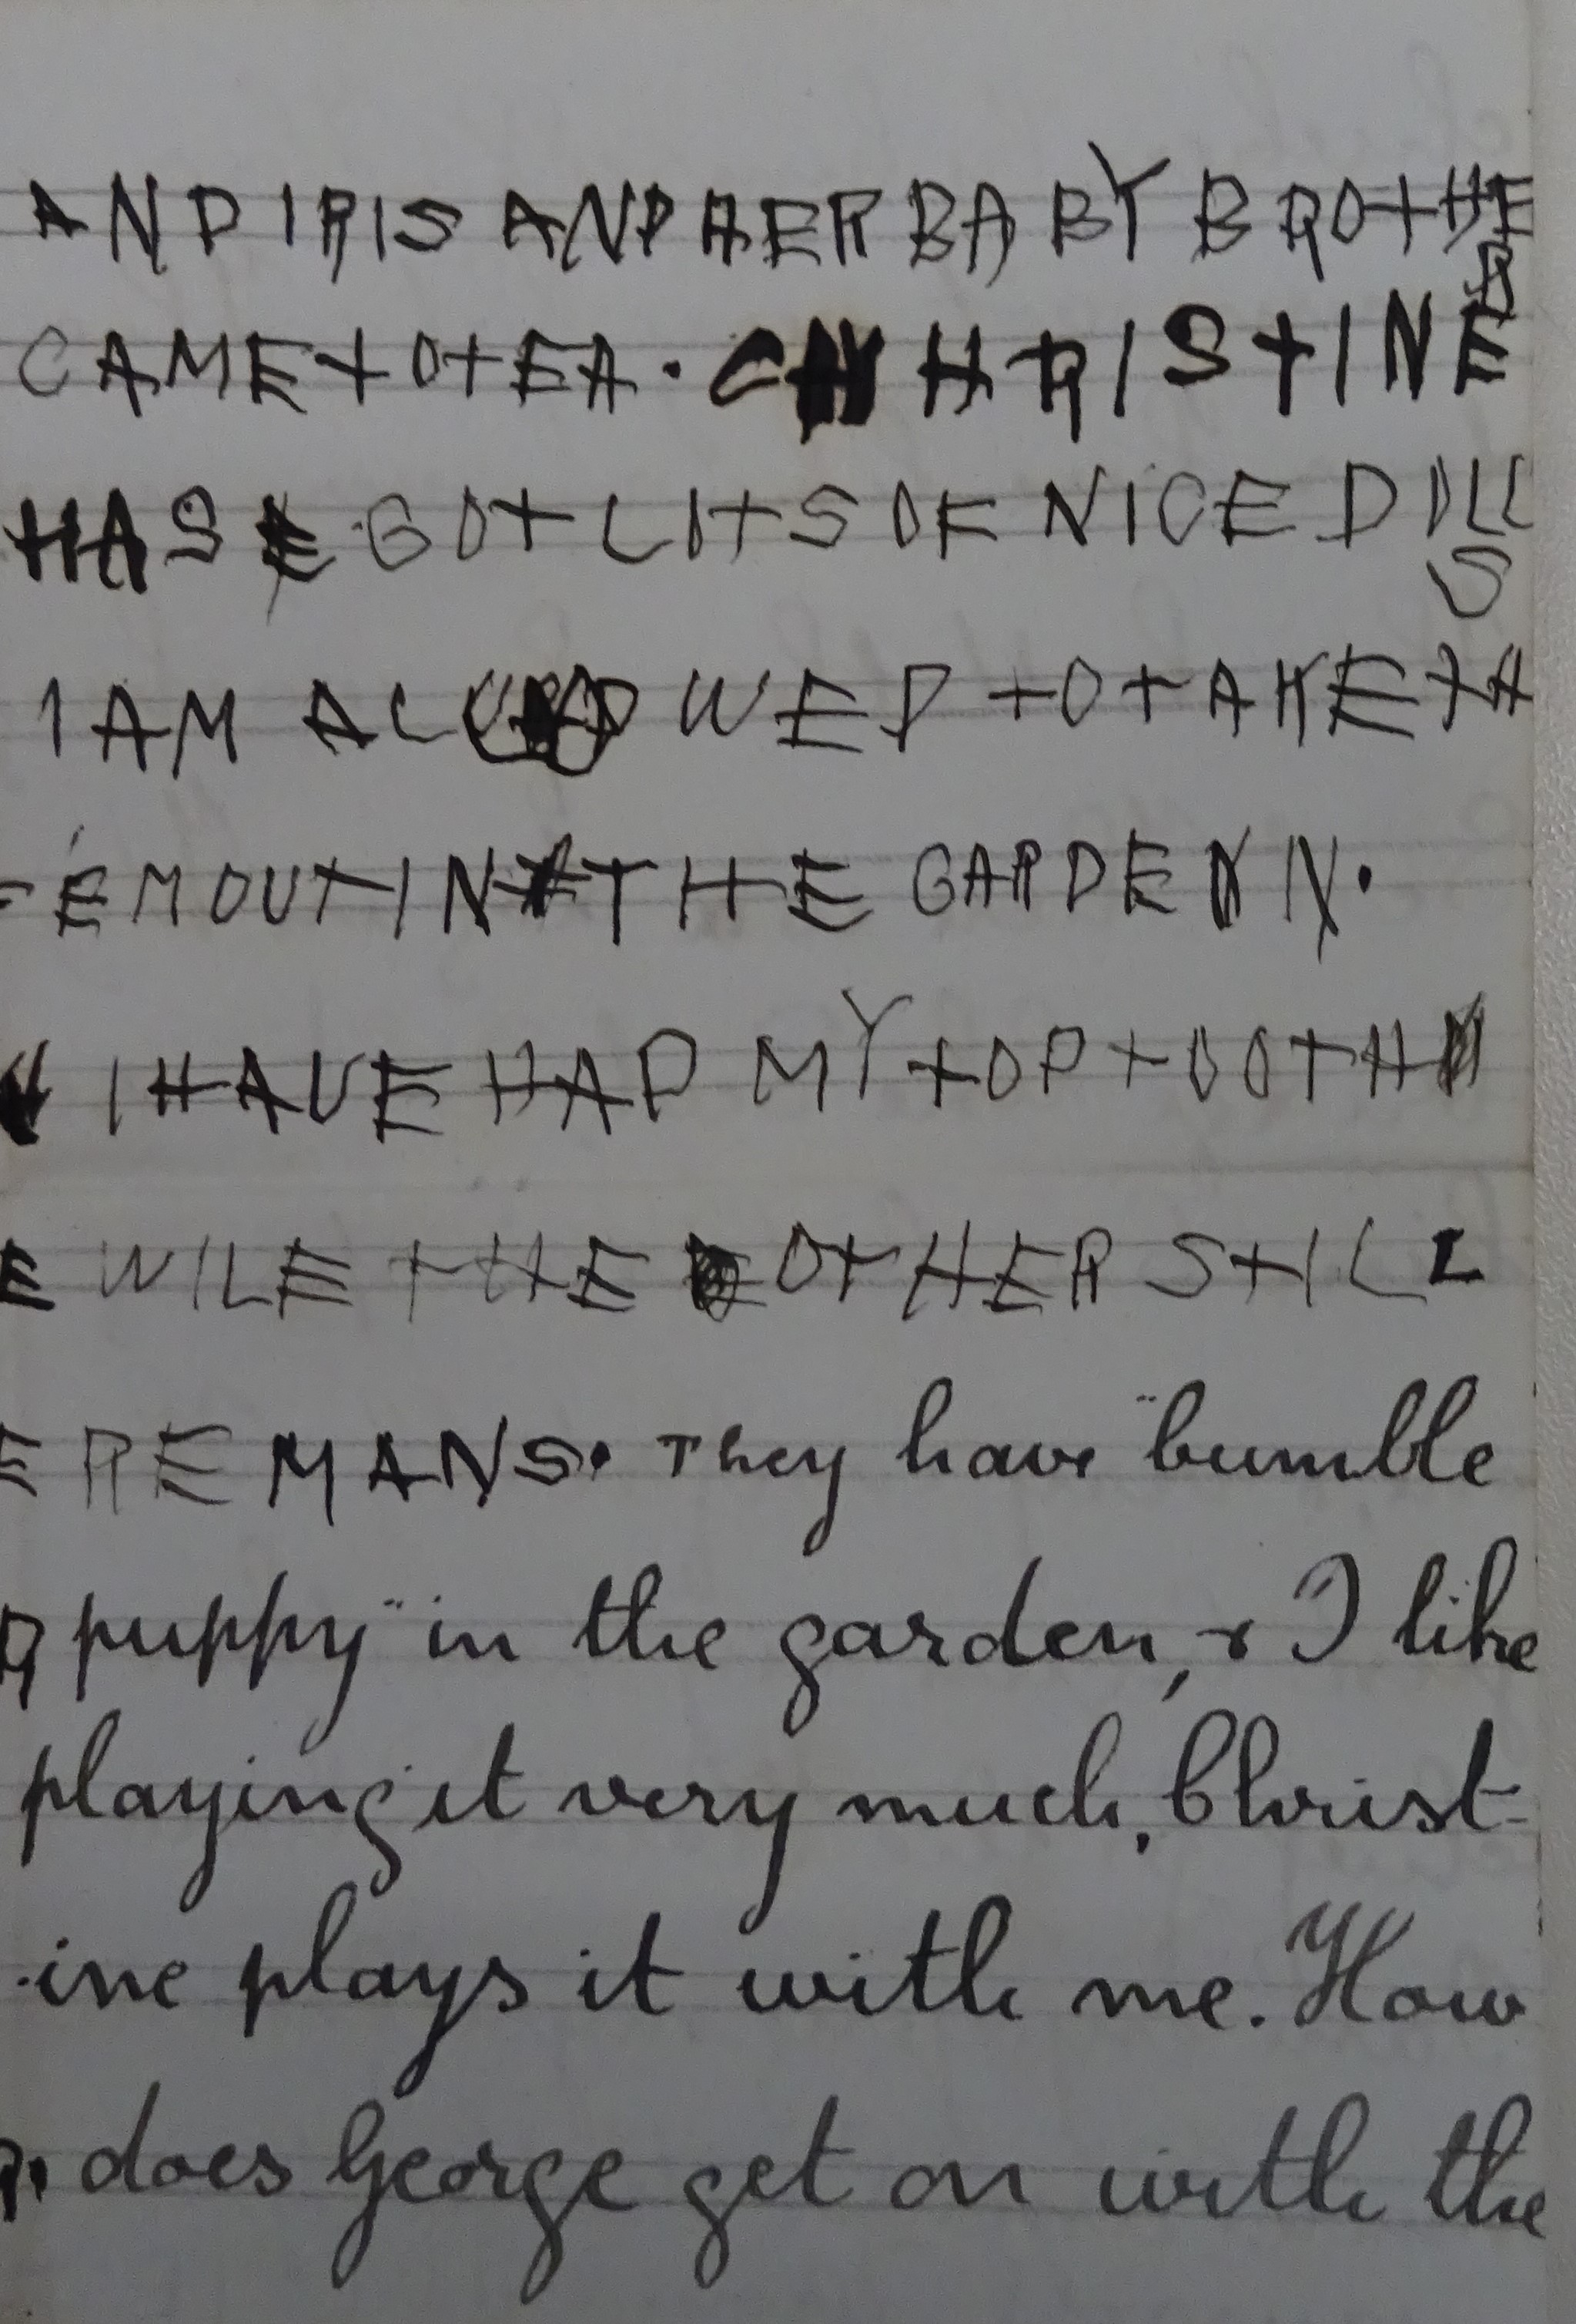 AND IRIS AND HER BABY BROTHER
CAME TO TEA. CHRISTINE
HAS GOT LOTS OF NICE DOLLS
I AM ALOWED TO TAKE TH
EM OUT IN THE GARDEN N.
I HAVE HAD MY TOP TOOTH
E WILE THE OTHER STILL
E REMANS. They have "bumble
puppy" in the garden, & I like
playing it very much, Christ-
-ine plays it with me. How
does George get on with the